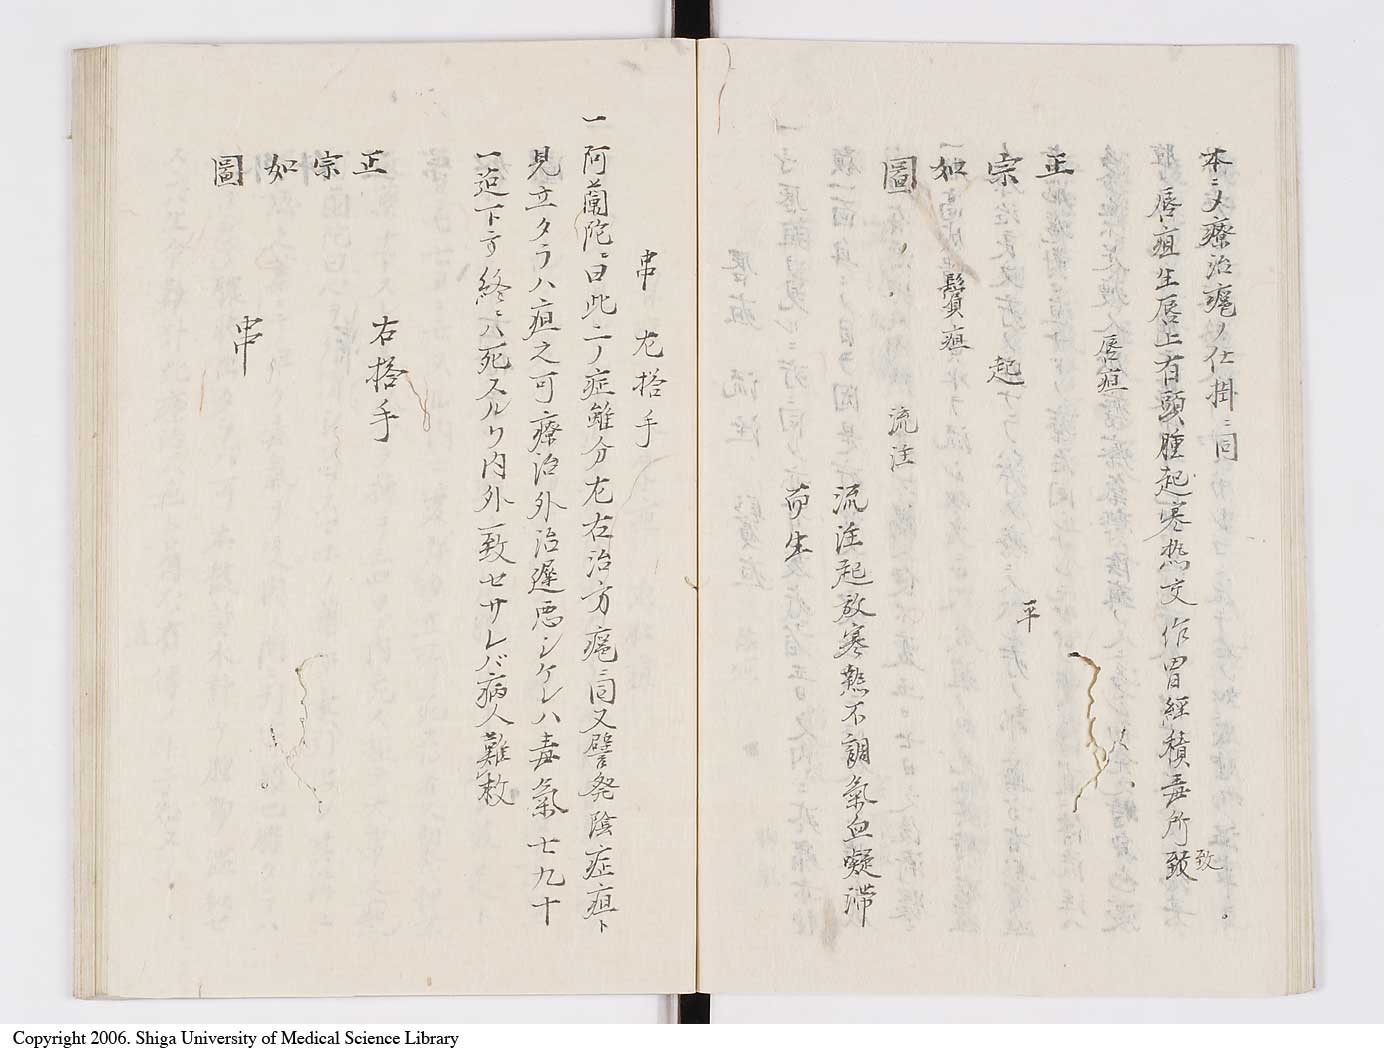 本ニメ療治瘡ノ仕掛ニ同
唇疽生唇上有頭腫起寒热交作胃經積毒所致
致
唇疽
平
正宗如圖
起
鬢疽
流注
流注起故寒熱不調氣血凝滞
而生
串 左搭手
一 阿蘭陀ニ曰此二ノ症雖分左右治方瘡ニ同又譬発陰症疽ト
見立タラハ疽之可療治外治遲悪シケレハ毒氣七九十
一迠下方終ニハ死スルソ内外一致セサレバ病人難救
正宗如圖
右搭手
串
Copyright 2006. Shiga University of Medical Science Library